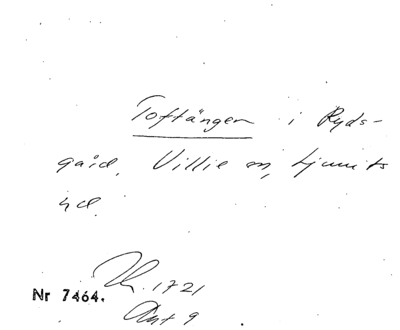 Toftängen i Ryds-
gård, Villie sn, Ljunits
hd.
Nr 7464.
1721
Akt 9